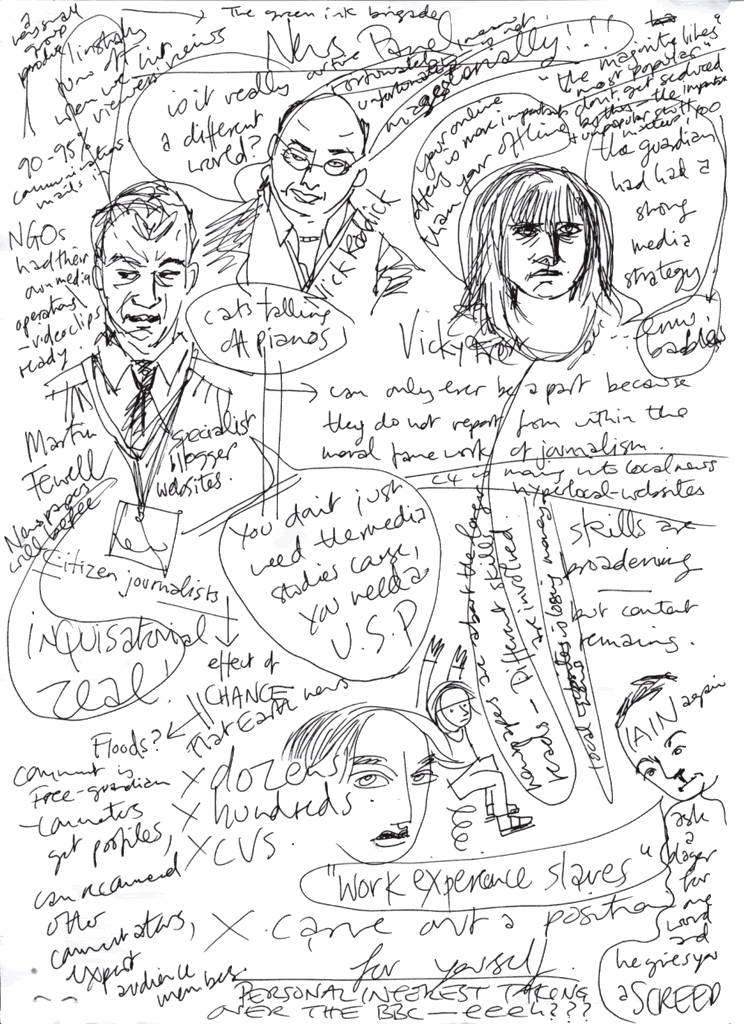 a
very small
group
produce
The green ink brigade
News Panel
majestorially!!!
is it really
a different
world?
"the majority likes"
"most popular"
don't get seduced
by this - the
unpopular stuff
matters, too
your online
offering is more important
than your offline
the guardian
had had a
strong
media
strategy
90-95%
communication
NGOs
had their
own media
operations
- video clips
ready!
Nick Reddick
cats falling
off pianos
Vicky Frost
babble!
Martin
Fewell
specialist
blogger
websites.
→ can only ever be a part because
they do not report from within the
moral framework of journalism.
C4 is moving into local news
hyperlocal-websites
Newspapers
will be free
citizen journalists
You don't just
need the media
studies course,
you need a
U.S.P
skills are
broadening
—
but content
remaining.
inquisatorial
zeal!
effect of
CHANCE
Flat Earth news
Floods?
newspapers are about the
Different skills
are involved
is losing money
comment is
free - guardian
- commenters
get profiles,
can recommend
other
commentators,
expert
audience
members.
x dozens
x hundreds
x CVS.
IAIN again
"Work experience slaves"
x carve out a position
for yourself
ask
a
blogger
for
one
word
and
he gives you
a SCREED
PERSONAL INTEREST TAKING
OVER THE BBC - eeek???